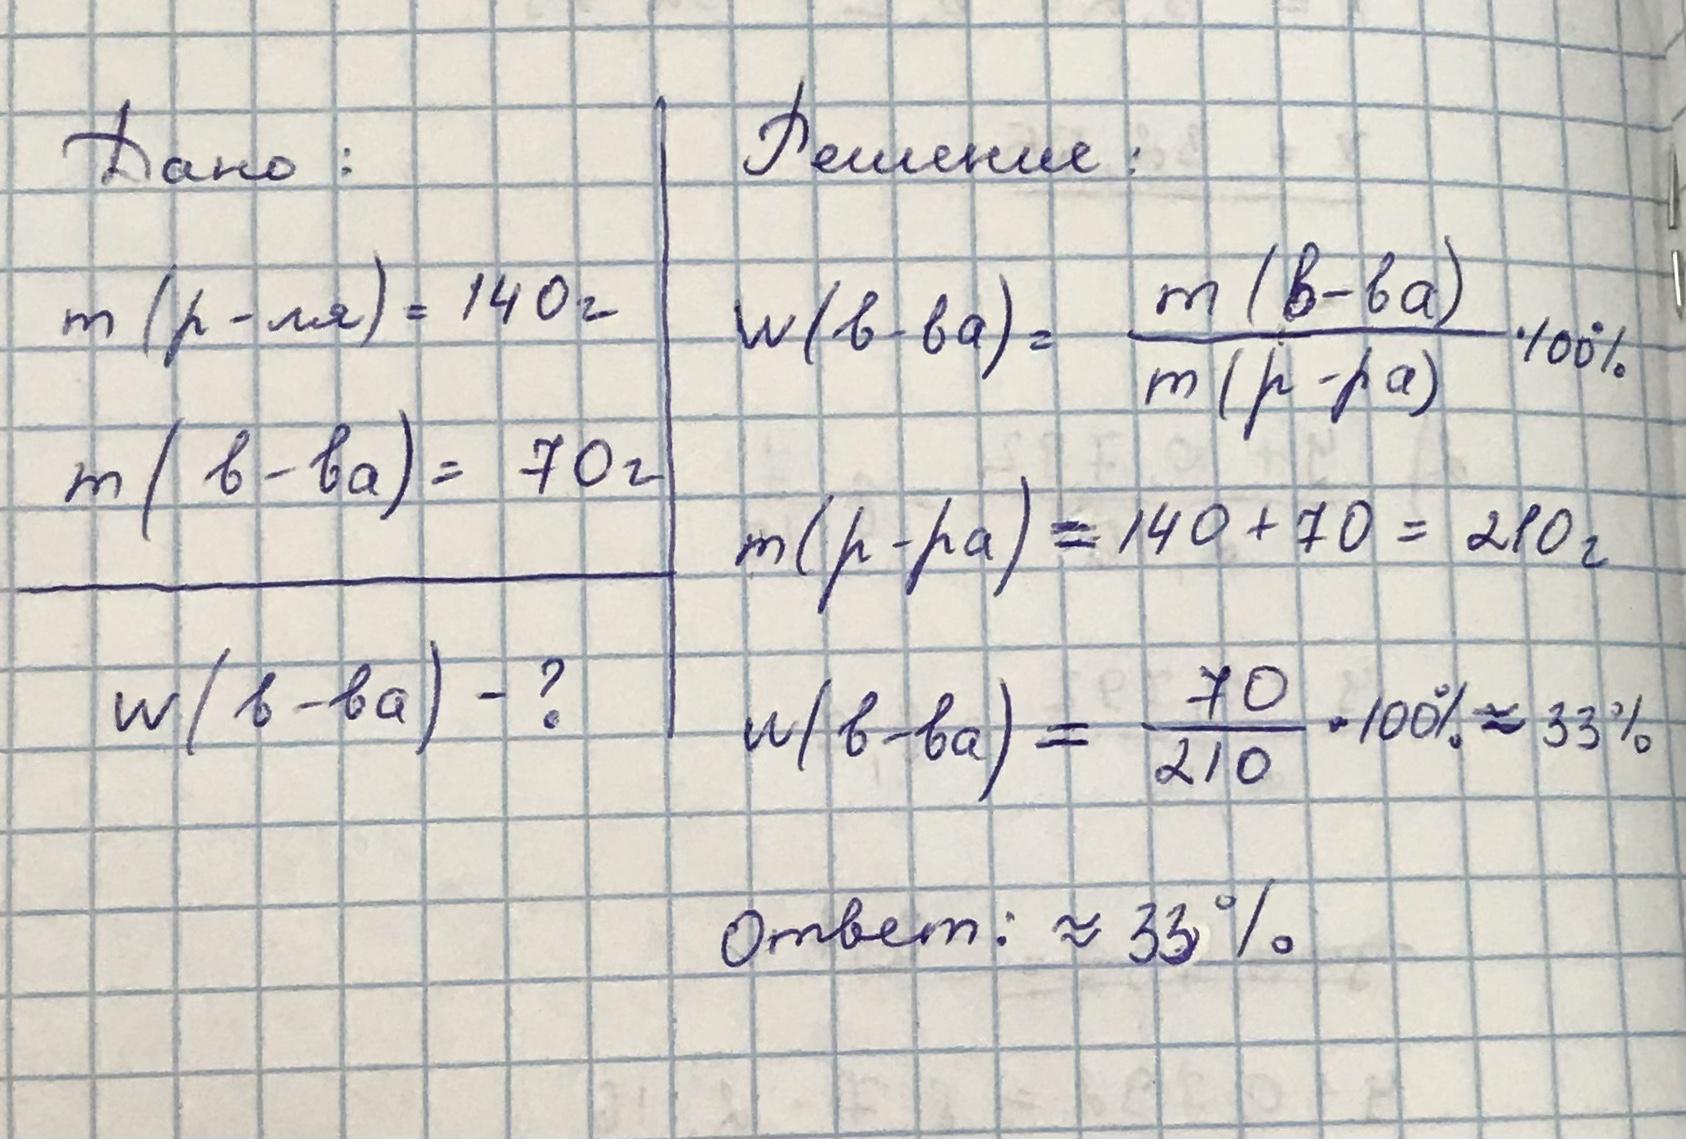 Дано:
m(р-ля) = 140г
m(в-ва) = 70г
w(в-ва) - ?
Решение:
w(в-ва) = m(в-ва) / m(р-ра) · 100%
m(р-ра) = 140 + 70 = 210г
w(в-ва) = 70 / 210 · 100% ≈ 33%
Ответ: ≈ 33%